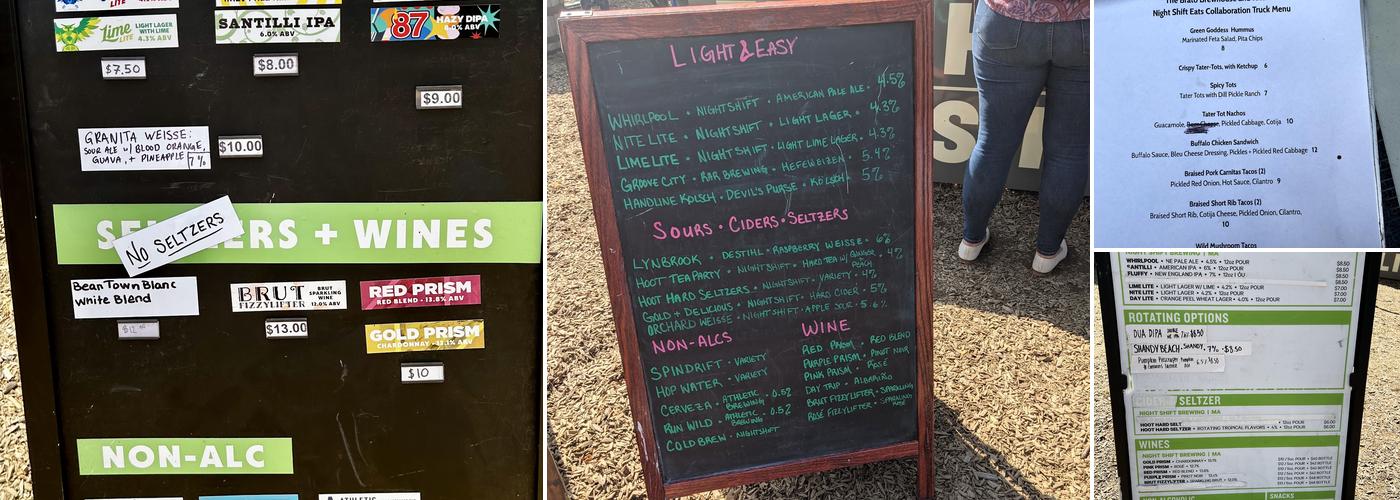 Lime LITE
LIGHT LAGER WITH LIME 4.3% ABV
SANTILLI IPA
6.0% ABV
87
HAZY DIPA
8.0% ABV
$7.50
$8.00
$9.00
GRANITA WEISSE:
SOUR ALE w/ BLOOD ORANGE,
GUAVA, + PINEAPPLE 7%
$10.00
SELTZERS + WINES
NO SELTZERS
Bean Town Blanc
White Blend
BRUT
FIZZYLIFTER
BRUT SPARKLING WINE 12.0% ABV
RED PRISM
RED BLEND • 13.8% ABV
$13.00
GOLD PRISM
CHARDONNAY • 13.1% ABV
$10
NON-ALC
LIGHT & EASY
WHIRLPOOL • NIGHTSHIFT • AMERICAN PALE ALE • 4.5%
NITE LITE • NIGHTSHIFT • LIGHT LAGER • 4.3%
LIME LITE • NIGHTSHIFT • LIGHT LIME LAGER • 4.3%
GROOVE CITY • RAR BREWING • HEFEWEIZEN • 5.4%
HANDLINE KOLSCH • DEVILS PURSE • KÖLSCH • 5%
SOURS • CIDERS • SELTZERS
LYNBROOK • DESTIHL • RASPBERRY WEISSE • 6%
HOOT TEA PARTY • NIGHTSHIFT • HARD TEA w/ GINGER PEACH • 4%
HOOT HARD SELTZERS • NIGHTSHIFT • VARIETY • 4%
GOLD + DELICIOUS • NIGHTSHIFT • HARD CIDER • 5%
ORCHARD WEISSE • NIGHTSHIFT • APPLE SOUR • 5.6%
NON-ALCS
SPINDRIFT • VARIETY
HOP WATER • VARIETY
CERVEZA • ATHLETIC BREWING • 0.5%
RUN WILD • ATHLETIC BREWING • 0.5%
COLD BREW • NIGHTSHIFT
WINE
RED PRISM • RED BLEND
PURPLE PRISM • PINOT NOIR
PINK PRISM • ROSÉ
DAY TRIP • ALBARIÑO
BRUT FIZZYLIFTER • SPARKLING
ROSÉ FIZZYLIFTER • SPARKLING ROSÉ
Night Shift Eats Collaboration Truck Menu
Green Goddess Hummus
Marinated Feta Salad, Pita Chips
8
Crispy Tater-Tots, with Ketchup 6
Spicy Tots
Tater Tots with Dill Pickle Ranch 7
Tater Tot Nachos
Guacamole, Pickled Cabbage, Cotija 10
Buffalo Chicken Sandwich
Buffalo Sauce, Bleu Cheese Dressing, Pickles + Pickled Red Cabbage 12
Braised Pork Carnitas Tacos (2)
Pickled Red Onion, Hot Sauce, Cilantro 9
Braised Short Rib Tacos (2)
Braised Short Rib, Cotija Cheese, Pickled Onion, Cilantro,
10
Wild Mushroom Tacos
NIGHT SHIFT BREWING | MA
WHIRLPOOL • NE PALE ALE • 4.5% • 12oz POUR
SANTILLI • AMERICAN IPA • 6% • 12oz POUR
FLUFFY • NEW ENGLAND IPA • 7%
LIME LITE • LIGHT LAGER W/ LIME • 4.2% • 12oz POUR
NITE LITE • LIGHT LAGER • 4.2% • 12oz POUR
DAY LITE • ORANGE PEEL WHEAT LAGER • 4.0% • 12oz POUR
$8.50
$8.50
$8.50
$7.00
$7.00
ROTATING OPTIONS
DUA DIPA $8.50
SHANDY BEACH • SHANDY • 7% • $8.50
CIDER / SELTZER
NIGHT SHIFT BREWING | MA
HOOT HARD SELTZER • ROTATING TROPICAL FLAVORS • 4% • 12oz POUR
WINES
NIGHT SHIFT BREWING | MA
GOLD PRISM • CHARDONNAY • 13.1%
PINK PRISM • ROSE • 12.7%
RED PRISM • RED BLEND • 13.8%
PURPLE PRISM • PINOT NOIR
BRUT FIZZYLIFTER
SNACKS